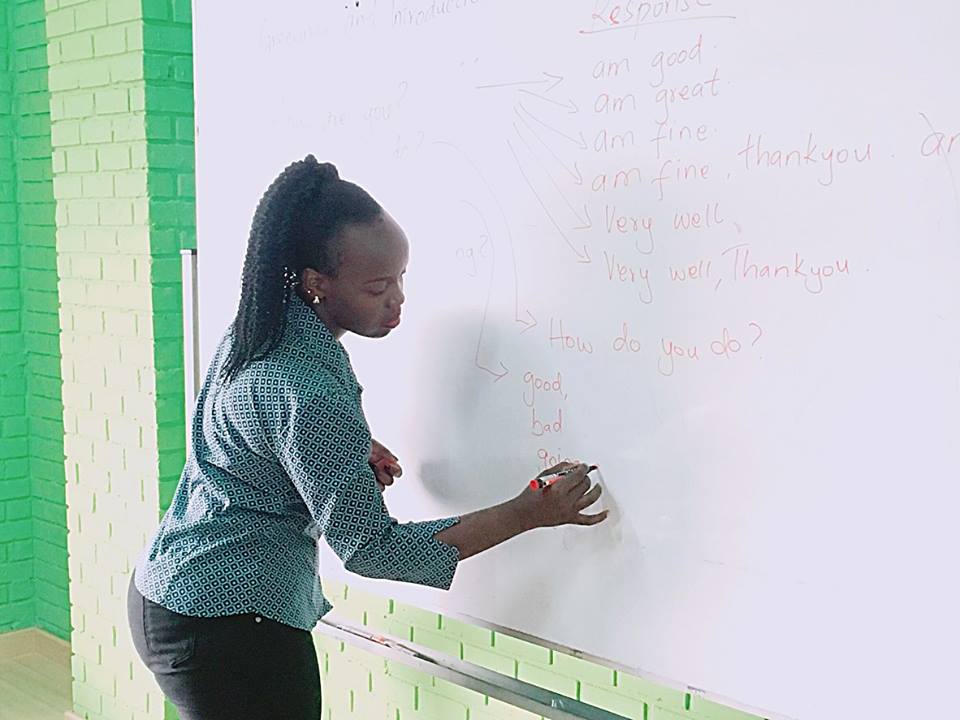 Greeting and Introduction
Response
am good.
am great.
you?
am fine.
do?
am fine, thankyou.
Very well,
ng?
Very well, Thankyou.
How do you do?
good,
bad
going